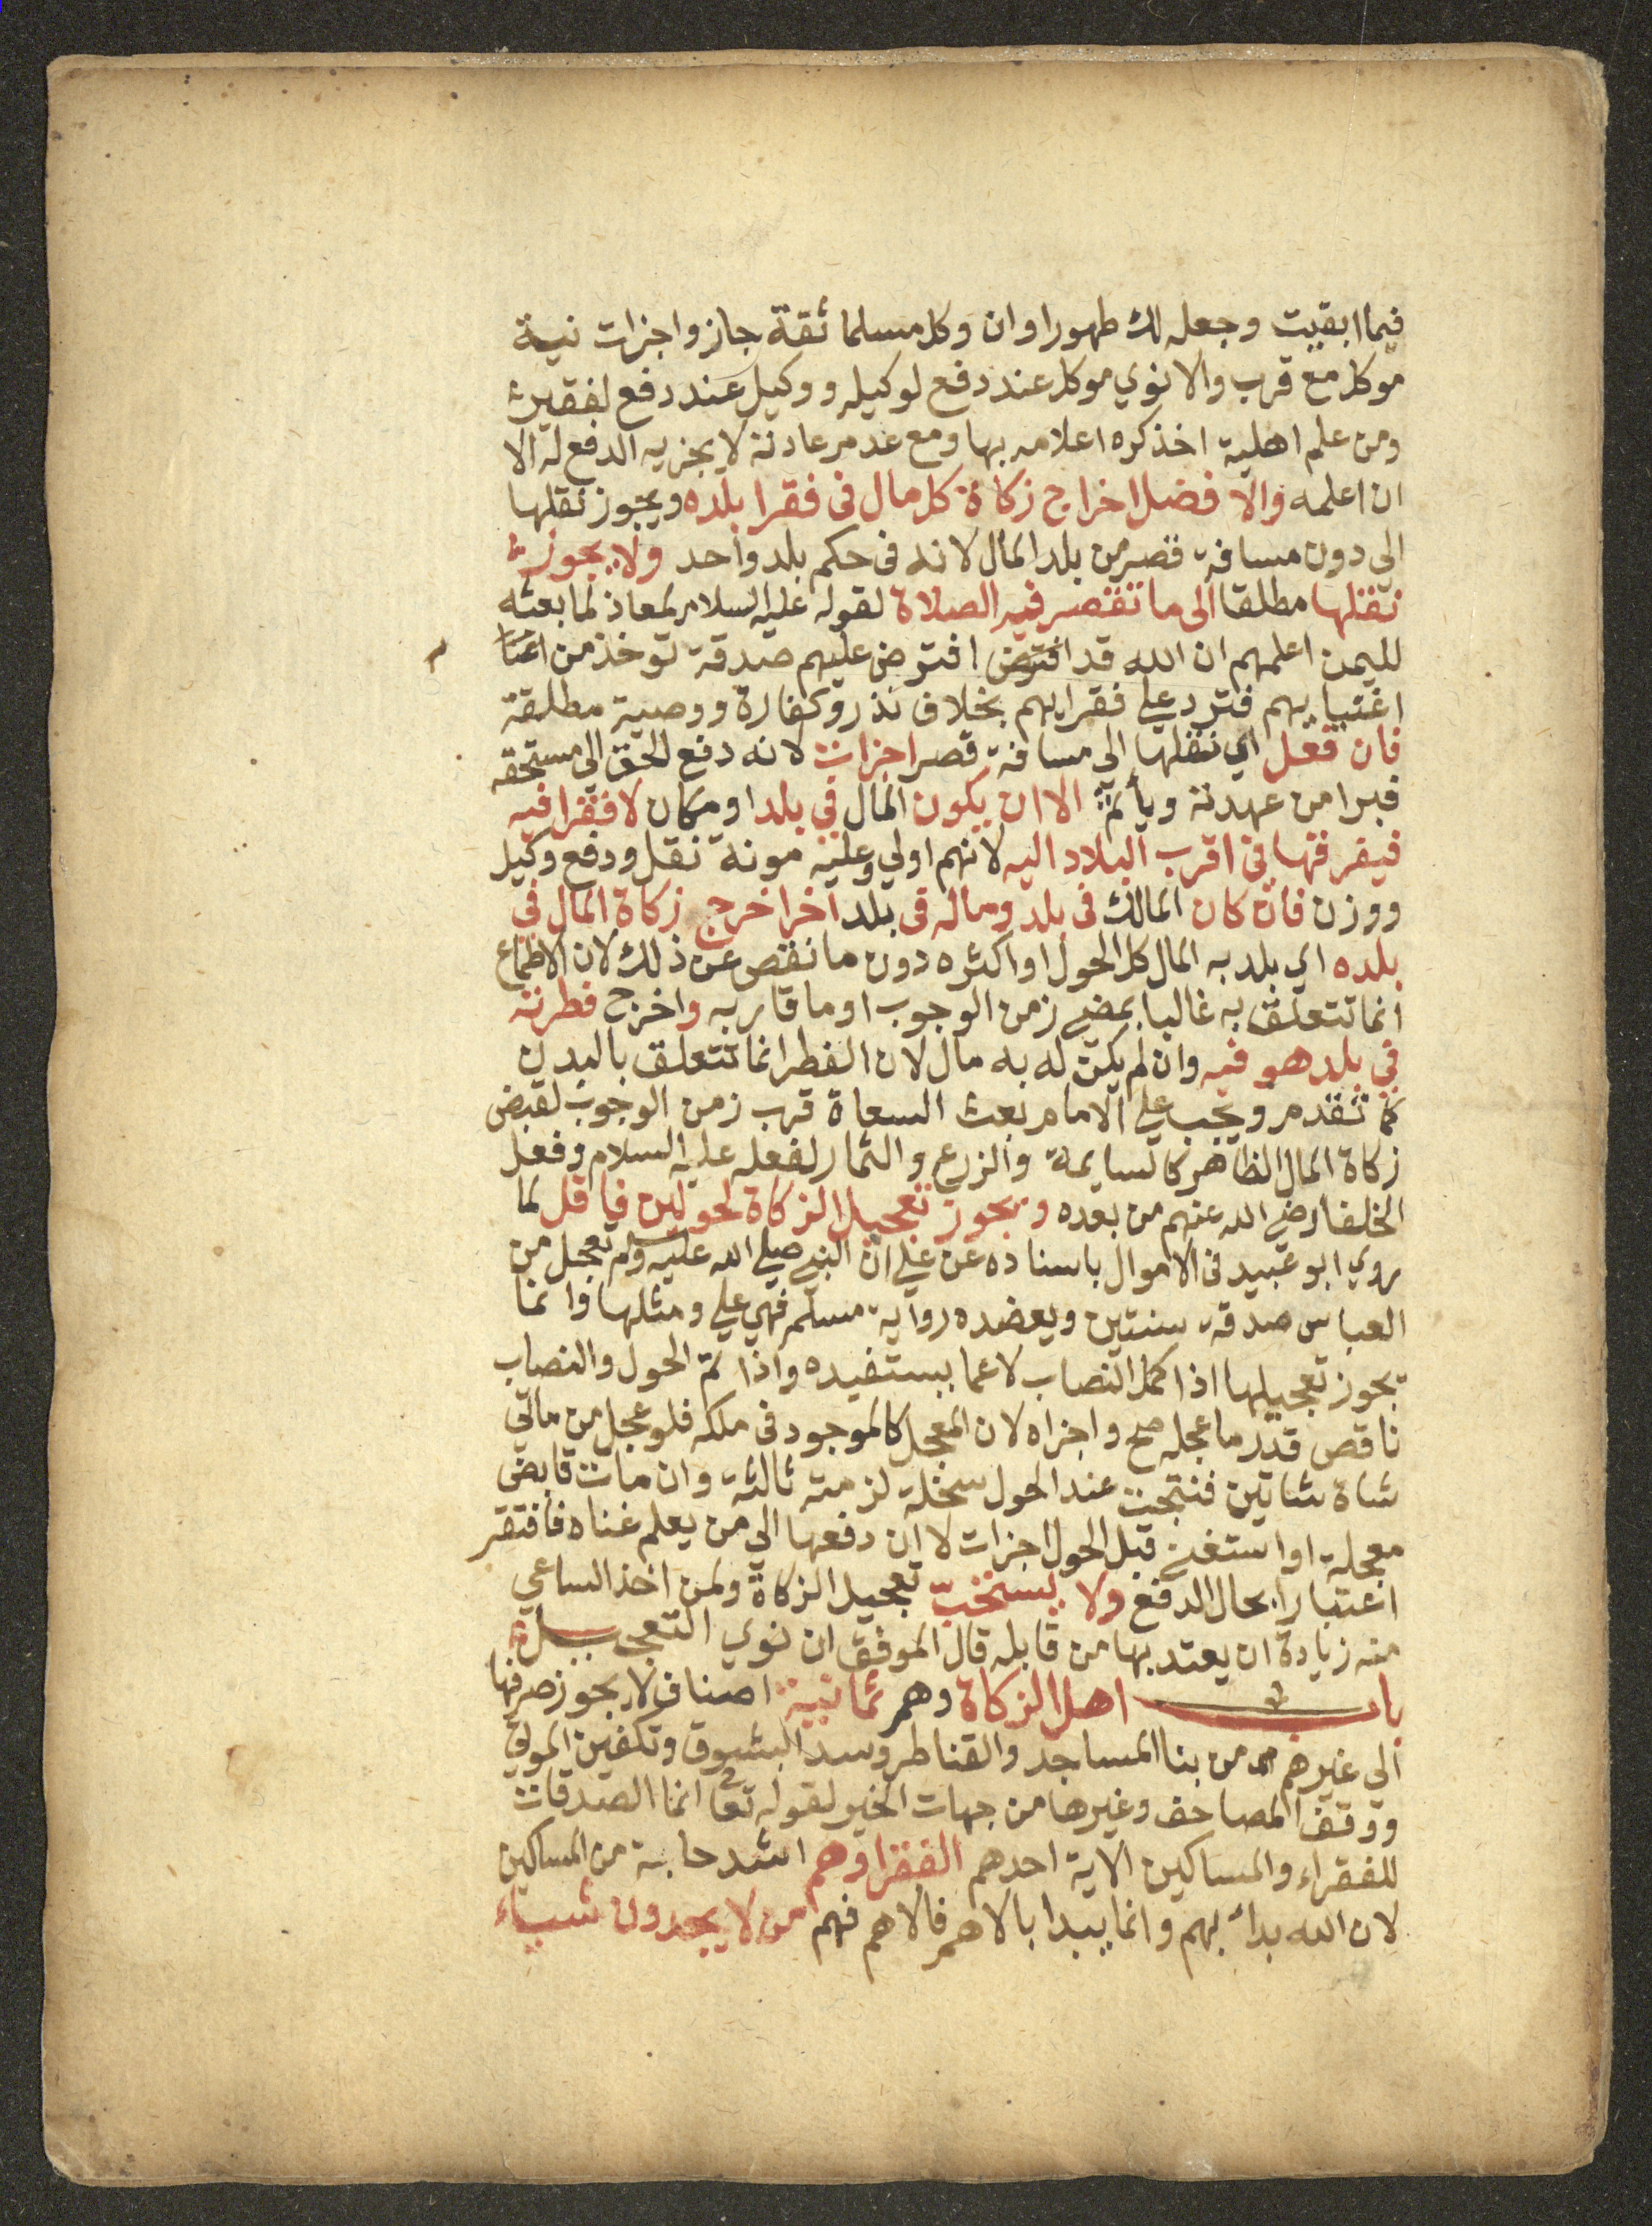 فيما ابقيت وجعله لك طهورا وان وكل مسلما ثقة جاز واجزات نية
موكل مع قرب والا نوي موكل عند دفع لوكيله ووكيل عند دفع لفقير
ومن علم اهلية اخذ كره اعلامه بها ومع عدم عادته لا يجزيه الدفع له الا
ان اعلمه والافضل اخراج زكاة كل مال في فقرا بلده ويجوز نقلها
الي دون مسافة قصر من بلد المال لانه في حكم بلد واحد ولا يجوز
نقلها مطلقا الي ما تقصر فيه الصلاة لقوله عليه السلام لمعاذ لما بعثه
لليمن اعلمهم ان الله قد افترض افترض عليهم صدقة توخذ من
اغنيايهم فترد علي فقرايهم بخلاف نذر وكفارة ووصية مطلقة
فان فعل اي نقلها الي مسافة قصر اجزات لانه دفع الحق الي مستحقه
فبرا من عهدته ويأثم الا ان يكون المال في بلد او مكان لا فقرا فيه
فيفرقها في اقرب البلاد اليه لانهم اولي وعليه مونة نقل ودفع وكيل
ووزن فان كان المالك في بلد وماله في بلد اخر اخرج زكاة المال في
بلده اي بلد به المال كل الحول او اكثره دون ما نقص عن ذلك لان الاطماع
انما تتعلق به غالبا بمضي زمن الوجوب او ما قاربه واخرج فطرته
في بلد هو فيه وان لم يكن له به مال لان الفطر انما تتعلق بالبدن
كما تقدم ويجب علي الامام بعث السعاة قرب زمن الوجوب لقبض
زكاة المال الظاهر كالسايمة والزرع والثمار لفعله عليه السلام وفعل
الخلفا رضي الله عنهم من بعده ويجوز تعجيل الزكاة لحولين فاقل لما
روي ابو عبيد في الاموال باسناده عن علي ان النبي صلي الله عليه وسلم تعجل من
العباس صدقة سنتين ويعضده رواية مسلم فهي علي ومثلها وانما
يجوز تعجيلها اذا كمل النصاب لا عما يستفيده واذا تم الحول والنصاب
ناقص قدر ما عجله صح واجزاه لان المعجل كالموجود في ملكه فلو عجل من مائتي
شاة شاتين فنتجت عند الحول سخلة لزمته ثالثة وان مات قابض
معجلة او استغني قبل الحول اجزات لا ان دفعها الي من يعلم غناه فافتقر
اعتبارا بحال الدفع ولا يستحب تعجيل الزكاة ولمن اخذ الساعي
منه زيادة ان يعتد بها من قابله قال الموفق ان نوي التعجيل
باب اهل الزكاة وهم ثمانية اصناف لا يجوز صرفها
الي غيرهم من بنا المساجد والقناطر وسد البثوق وتكفين الموتي
ووقف المصاحف وغيرها من جهات الخير لقوله تعا انما الصدقات
للفقراء والمساكين الاية احدهم الفقرا وهم اشد حاجة من المساكين
لان الله بدأ بهم وانما يبدا بالاهم فالاهم فهم من لا يجدون شياء